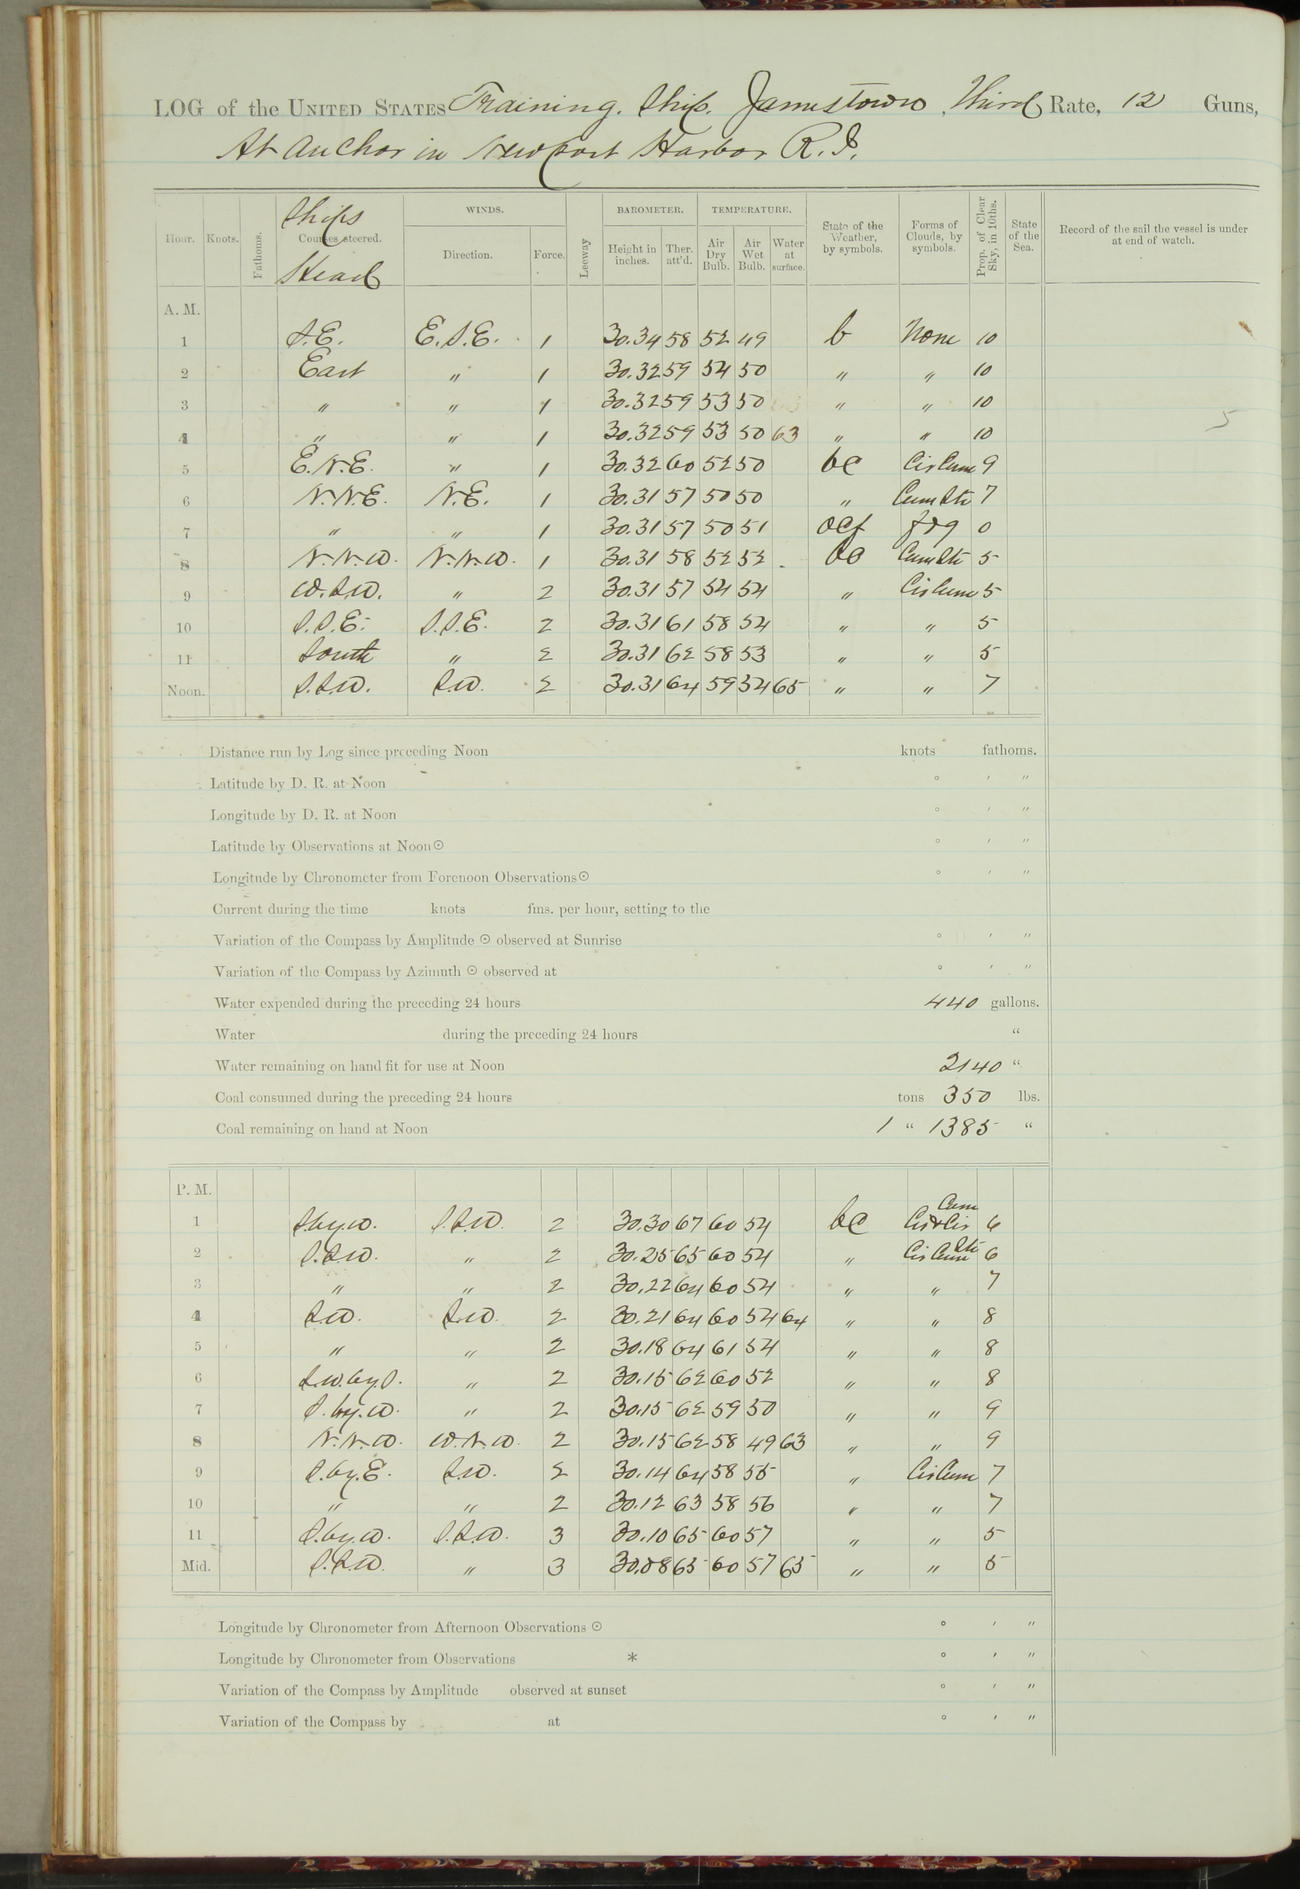 LOG of the UNITED STATES Training Ship Jamestown, Third Rate, 12 Guns,
At anchor in Newport Harbor R.I.
Hour. Knots. Fathoms. Courses steered. Ships Head WINDS. Direction. Force. Leeway BAROMETER. Height in inches. Ther. att'd. TEMPERATURE. Air Dry Bulb. Air Wet Bulb. Water at surface. State of the Weather, by symbols. Forms of Clouds, by symbols. Prop. of Clear Sky, in 10ths. State of the Sea. Record of the sail the vessel is under at end of watch.
A. M.
1 S.E. E.S.E. 1 30.34 58 52 49 b None 10
2 East " 1 30.32 59 54 50 " " 10
3 " " 1 30.32 59 53 50 " " 10
4 " " 1 30.32 59 53 50 63 " " 10
5 E.N.E. " 1 30.32 60 52 50 bc Cir Cum 9
6 N.N.E. N.E. 1 30.31 57 50 50 " Cum Str 7
7 " " 1 30.31 57 50 51 ocf fog 0
8 N.N.W. N.N.W. 1 30.31 58 52 52 bc Cum Str 5
9 W.S.W. " 2 30.31 57 54 54 " Cir Cum 5
10 S.S.E. S.S.E. 2 30.31 61 58 54 " " 5
11 South " 2 30.31 62 58 53 " " 5
Noon. S.S.W. S.W. 2 30.31 64 59 54 65 " " 7
Distance run by Log since preceding Noon knots fathoms.
Latitude by D. R. at Noon ° ′ ″
Longitude by D. R. at Noon ° ′ ″
Latitude by Observations at Noon ☉ ° ′ ″
Longitude by Chronometer from Forenoon Observations ☉ ° ′ ″
Current during the time knots fms. per hour, setting to the
Variation of the Compass by Amplitude ☉ observed at Sunrise ° ′ ″
Variation of the Compass by Azimuth ☉ observed at ° ′ ″
Water expended during the preceding 24 hours 440 gallons.
Water during the preceding 24 hours "
Water remaining on hand fit for use at Noon 2140 "
Coal consumed during the preceding 24 hours tons 350 lbs.
Coal remaining on hand at Noon 1 " 1385 "
P. M.
1 S.by.W. S.S.W. 2 30.30 67 60 54 bc Cir & Cir Cum 6
2 S.S.W. " 2 30.25 65 60 54 " Cir Cum Str 6
3 " " 2 30.22 64 60 54 " " 7
4 S.W. S.W. 2 30.21 64 60 54 64 " " 8
5 " " 2 30.18 64 61 54 " " 8
6 S.W.by.S. " 2 30.15 62 60 52 " " 8
7 S.by.W. " 2 30.15 62 59 50 " " 9
8 N.N.W. W.N.W. 2 30.15 62 58 49 63 " " 9
9 S.by.E. S.W. 2 30.14 64 58 55 " Cir Cum 7
10 " " 2 30.12 63 58 56 " " 7
11 S.by.W. S.S.W. 3 30.10 65 60 57 " " 5
Mid. S.S.W. " 3 30.08 65 60 57 65 " " 5
Longitude by Chronometer from Afternoon Observations ☉ ° ′ ″
Longitude by Chronometer from Observations * ° ′ ″
Variation of the Compass by Amplitude observed at sunset ° ′ ″
Variation of the Compass by at ° ′ ″